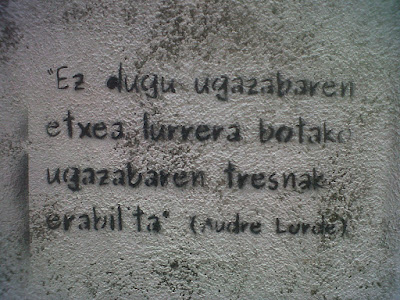 "Ez dugu ugazabaren
etxea lurrera botako
ugazabaren tresnak
erabil'ta" (Audre Lorde)